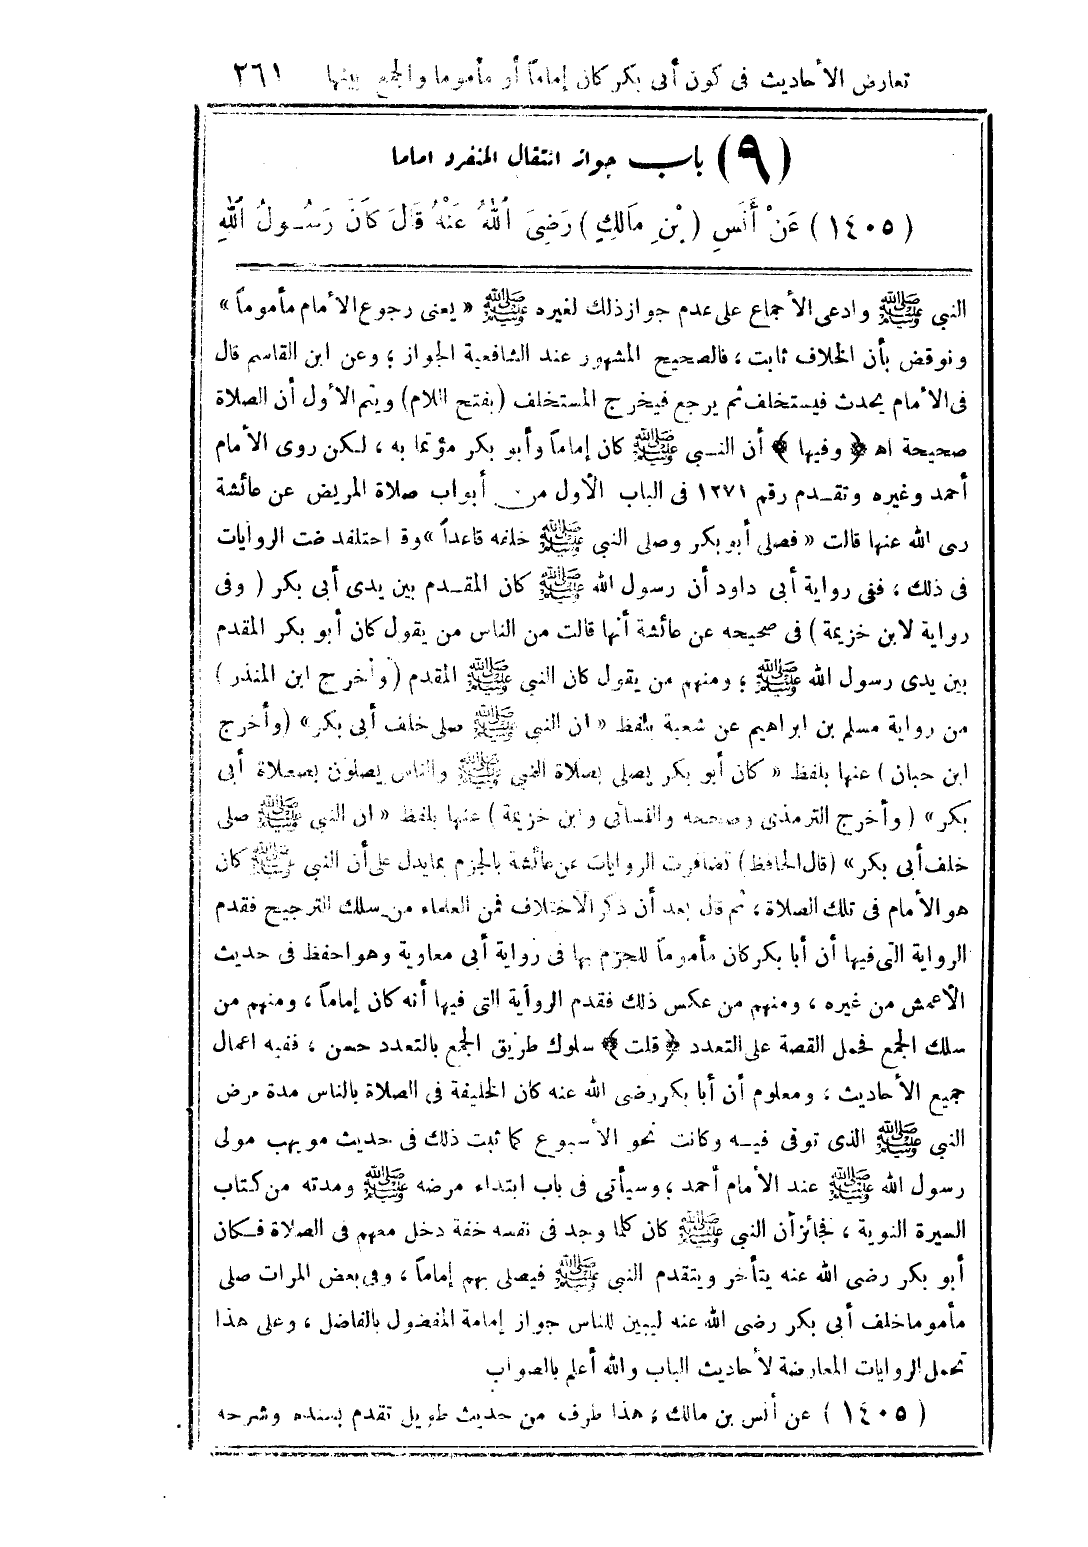 تعارض الأحاديث فى كون أبى بكر كان إماماً أو مأموما والجمع بينها ٢٦١
(٩) باب جواز انتقال المنفرد اماما
(١٤٠٥) عَنْ أَنَسِ (بْنِ مَالِكٍ) رَضِىَ ٱللّٰهُ عَنْهُ قَالَ كَانَ رَسُولُ ٱللّٰهِ
النبى ﷺ وادعى الأجماع على عدم جواز ذلك لغيره ﷺ « يعنى رجوع الأمام مأموماً »
ونوقض بأن الخلاف ثابت ، فالصحيح المشهور عند الشافعية الجواز ؛ وعن ابن القاسم قال
فى الأمام يحدث فيستخلف ثم يرجع فيخرج المستخلف (بفتح اللام) ويتم الأول أن الصلاة
صحيحة اه ﴿ وفيها ﴾ أن النبى ﷺ كان إماماً وأبو بكر مؤتما به ، لكن روى الأمام
أحمد وغيره وتقدم رقم ١٢٧١ فى الباب الأول من أبواب صلاة المريض عن عائشة
رى الله عنها قالت « فصلى أبو بكر وصلى النبى ﷺ خلفه قاعداً » وق احتلفد ضت الروايات
فى ذلك ، ففى رواية أبى داود أن رسول الله ﷺ كان المقدم بين يدى أبى بكر ( وفى
رواية لابن خزيمة ) فى صحيحه عن عائشة أنها قالت من الناس من يقول كان أبو بكر المقدم
بين يدى رسول الله ﷺ ؛ ومنهم من يقول كان النبى ﷺ المقدم ( وأخرج ابن المنذر )
من رواية مسلم بن ابراهيم عن شعبة بلفظ « ان النبى ﷺ صلى خلف أبى بكر » (وأخرج
ابن حبان ) عنها بلفظ « كان أبو بكر يصلى بصلاة النبى ﷺ والناس يصلون بصلاة أبى
بكر » ( وأخرج الترمذى وصححه والنسائى وابن خزيمة ) عنها بلفظ « ان النبى ﷺ صلى
خلف أبى بكر » (قال الحافظ) تضافرت الروايات عن عائشة بالجزم بما يدل على أن النبى ﷺ كان
هو الأمام فى تلك الصلاة ، ثم قال بعد أن ذكر الاختلاف فمن العلماء من سلك الترجيح فقدم
الرواية التى فيها أن أبا بكر كان مأموماً للجزم بها فى رواية أبى معاوية وهو احفظ فى حديث
الأعمش من غيره ، ومنهم من عكس ذلك فقدم الرواية التى فيها أنه كان إماماً ، ومنهم من
سلك الجمع فحمل القصة على التعدد ﴿ قلت ﴾ سلوك طريق الجمع بالتعدد حسن ، ففيه اعمال
جميع الأحاديث ، ومعلوم أن أبا بكر رضى الله عنه كان الخليفة فى الصلاة بالناس مدة مرض
النبى ﷺ الذى توفى فيه وكانت نحو الأسبوع كما ثبت ذلك فى حديث مويهب مولى
رسول الله ﷺ عند الأمام أحمد ؛ وسيأتى فى باب ابتداء مرضه ﷺ ومدته من كتاب
السيرة النوية ، فجائز أن النبى ﷺ كان كلما وجد فى نفسه خفة دخل معهم فى الصلاة فكان
أبو بكر رضى الله عنه يتأخر ويتقدم النبى ﷺ فيصلى بهم إماماً ، وفى بعض المرات صلى
مأموما خلف أبى بكر رضى الله عنه ليبين للناس جواز إمامة المفضول بالفاضل ، وعلى هذا
تحمل الروايات المعارضة لأحاديث الباب والله أعلم بالصواب
( ١٤٠٥ ) عن أنس بن مالك ، هذا طرف من حديث طويل تقدم بسنده وشرحه